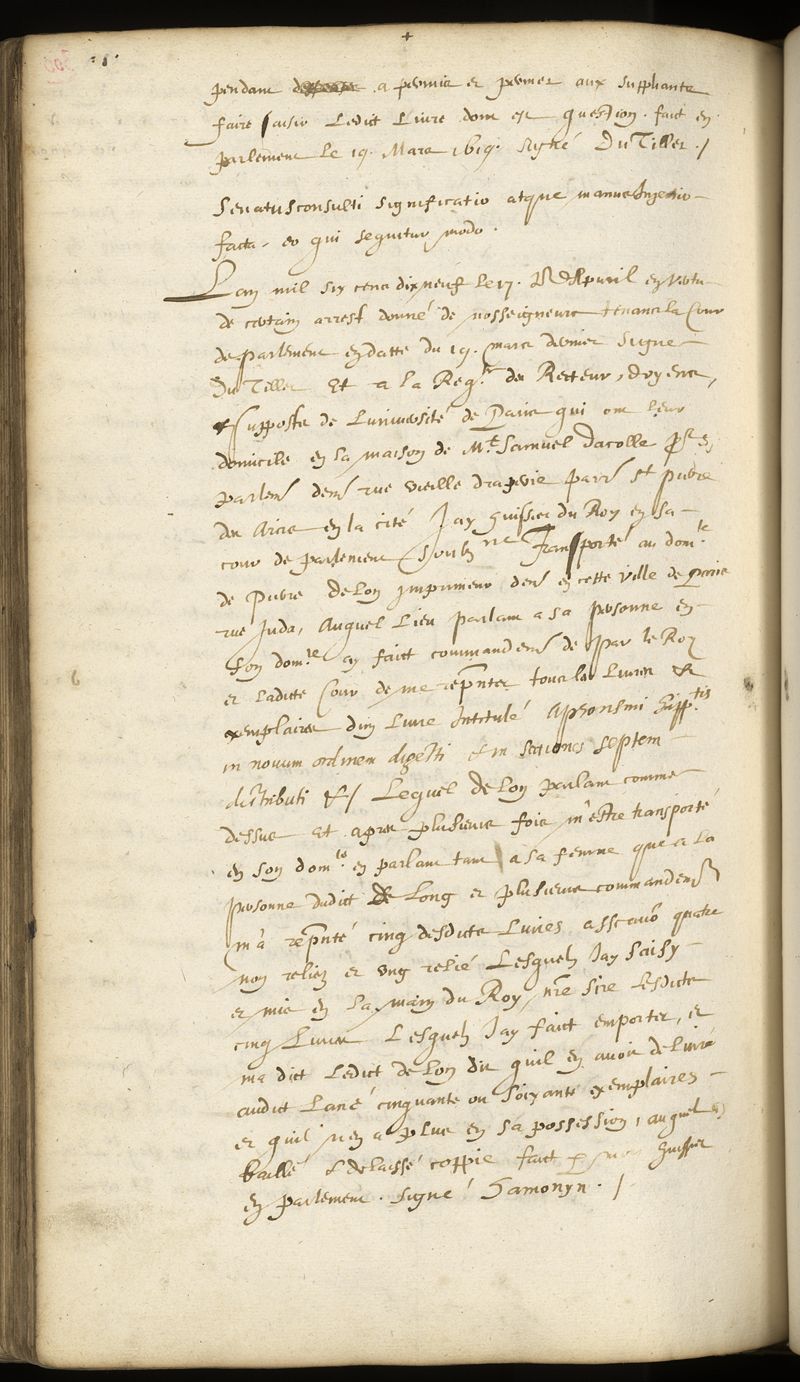 pendant a permis et permet aux suppliants
faire saisir Ledict Livre dont est question. faict en
parlement le 19. Mars 1619. Signé DuTillet ./
Senatusconsulti significatio atque manus Iniectio
facta, eo qui sequitur modo.
Lan mil six cens dix neuf le 17. d'Apvril en vertu
de certain arrest donné de nosseigneurs tenans la Cour
de parlement en datte du 19. mars dernier Signé
Du Tillet Et a la Reqte des Recteur, doyens,
& supposts de Luniversité de Paris qui ont leur
domicile en la maison de Me Samuel Dacolle pr en
parlemt demt rue vieille draperie parr St pierre
des Arcis en la cité Jay huissier du Roy en sa
cour de parlement soubzne Transporté au domle
de Pierre deLon Imprimeur demt en cette ville de Paris
rue Judas, Auquel Lieu parlant a sa personne en
son domle ay faict commandemt de par le Roy
et ladicte Cour de me repnter tous les Livres &
exemplaires dun Livre Intitulé Aphorismi hipptis
in novum ordinem digesti & in sectiones septem
distributi &/ Lequel deLon parlant comme
dessus Et apres plusieurs fois m'estre transporté
en son domle en parlant tant a sa femme que a la
personne dudict de Long et plusieurs commandemts
m'a repnté cinq desdicts Livres assavoir quatre
non reliez et ung relié Lesquels Jay Saisy
et mis en La main du Roy, nre Sire Lesdicts
cinq Livres Lesquels Jay faict emporter, et
ma dict Ledict deLon dit quil en avoit delivré
audict Lané cinquante ou soixante exemplaires
et quil nen a plus en sa possession, auquel Jay
baillé & delaissé coppie faict p moy huissier
En parlement. Signé Hamonyn. /